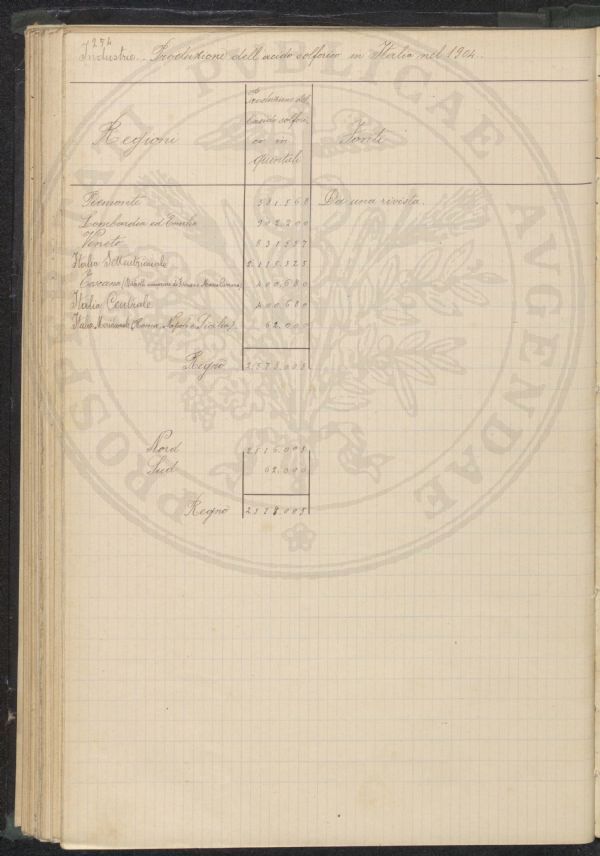 254
Industrie. Produzione dell'acido solforico in Italia nel 1904.
Regioni
Produzione del
l'acido solfori
co in
quintali
Fonti
Piemonte 681.568 Da una rivista.
Lombardia ed Emilia 902.200
Veneto 531.557
Italia Settentrionale 2.115.325
Toscana 400.680
Italia Centrale 400.680
Italia Meridionale (Roma, Napoli e Sicilia) 62.000
Regno 2.578.005
Nord 2.516.005
Sud 62.000
Regno 2.578.005
PUBLICAE